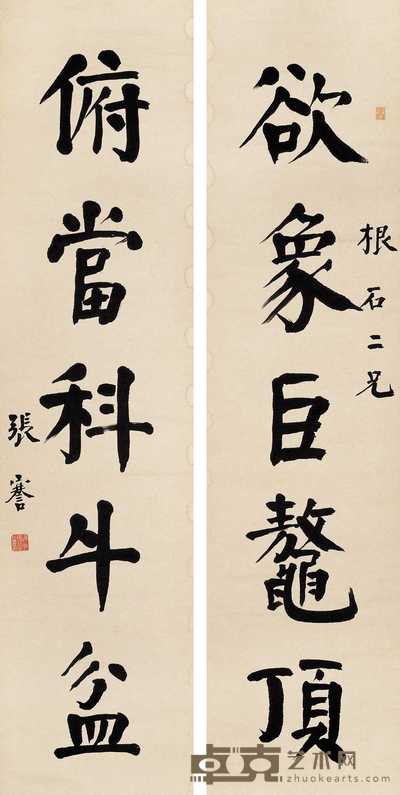 根石二兄
欲象巨鼇頂
俯當科斗盆
張謇
卓克艺术网
zhuokearts.com